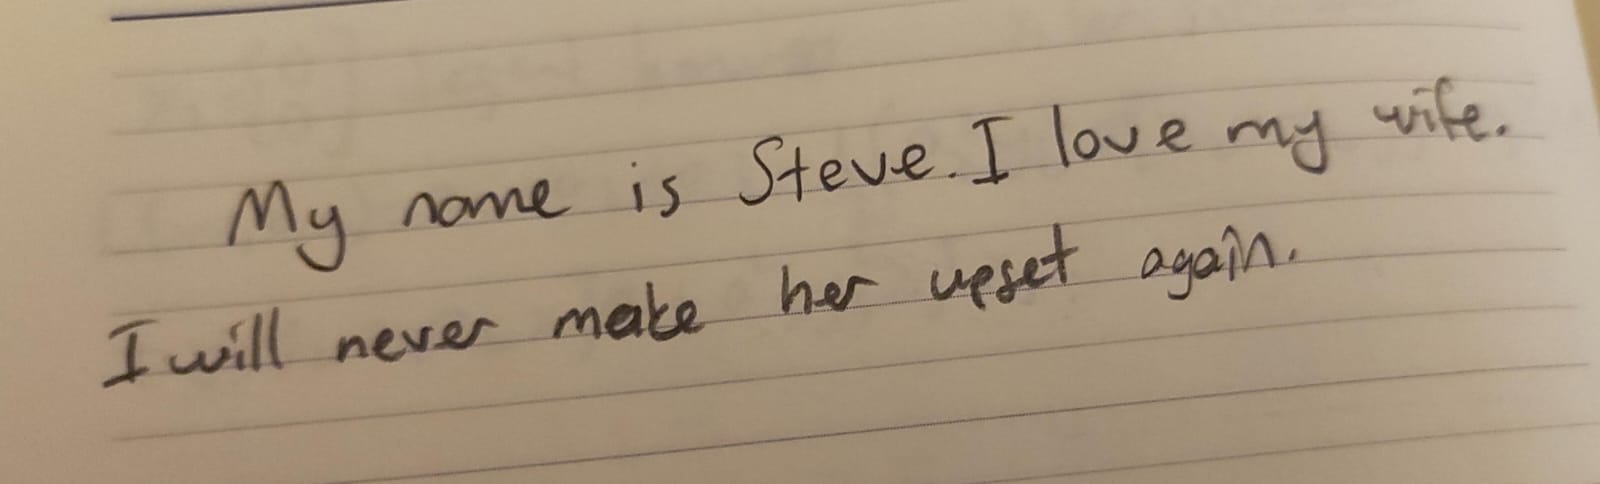 My name is Steve. I love my wife.
I will never make her upset again.